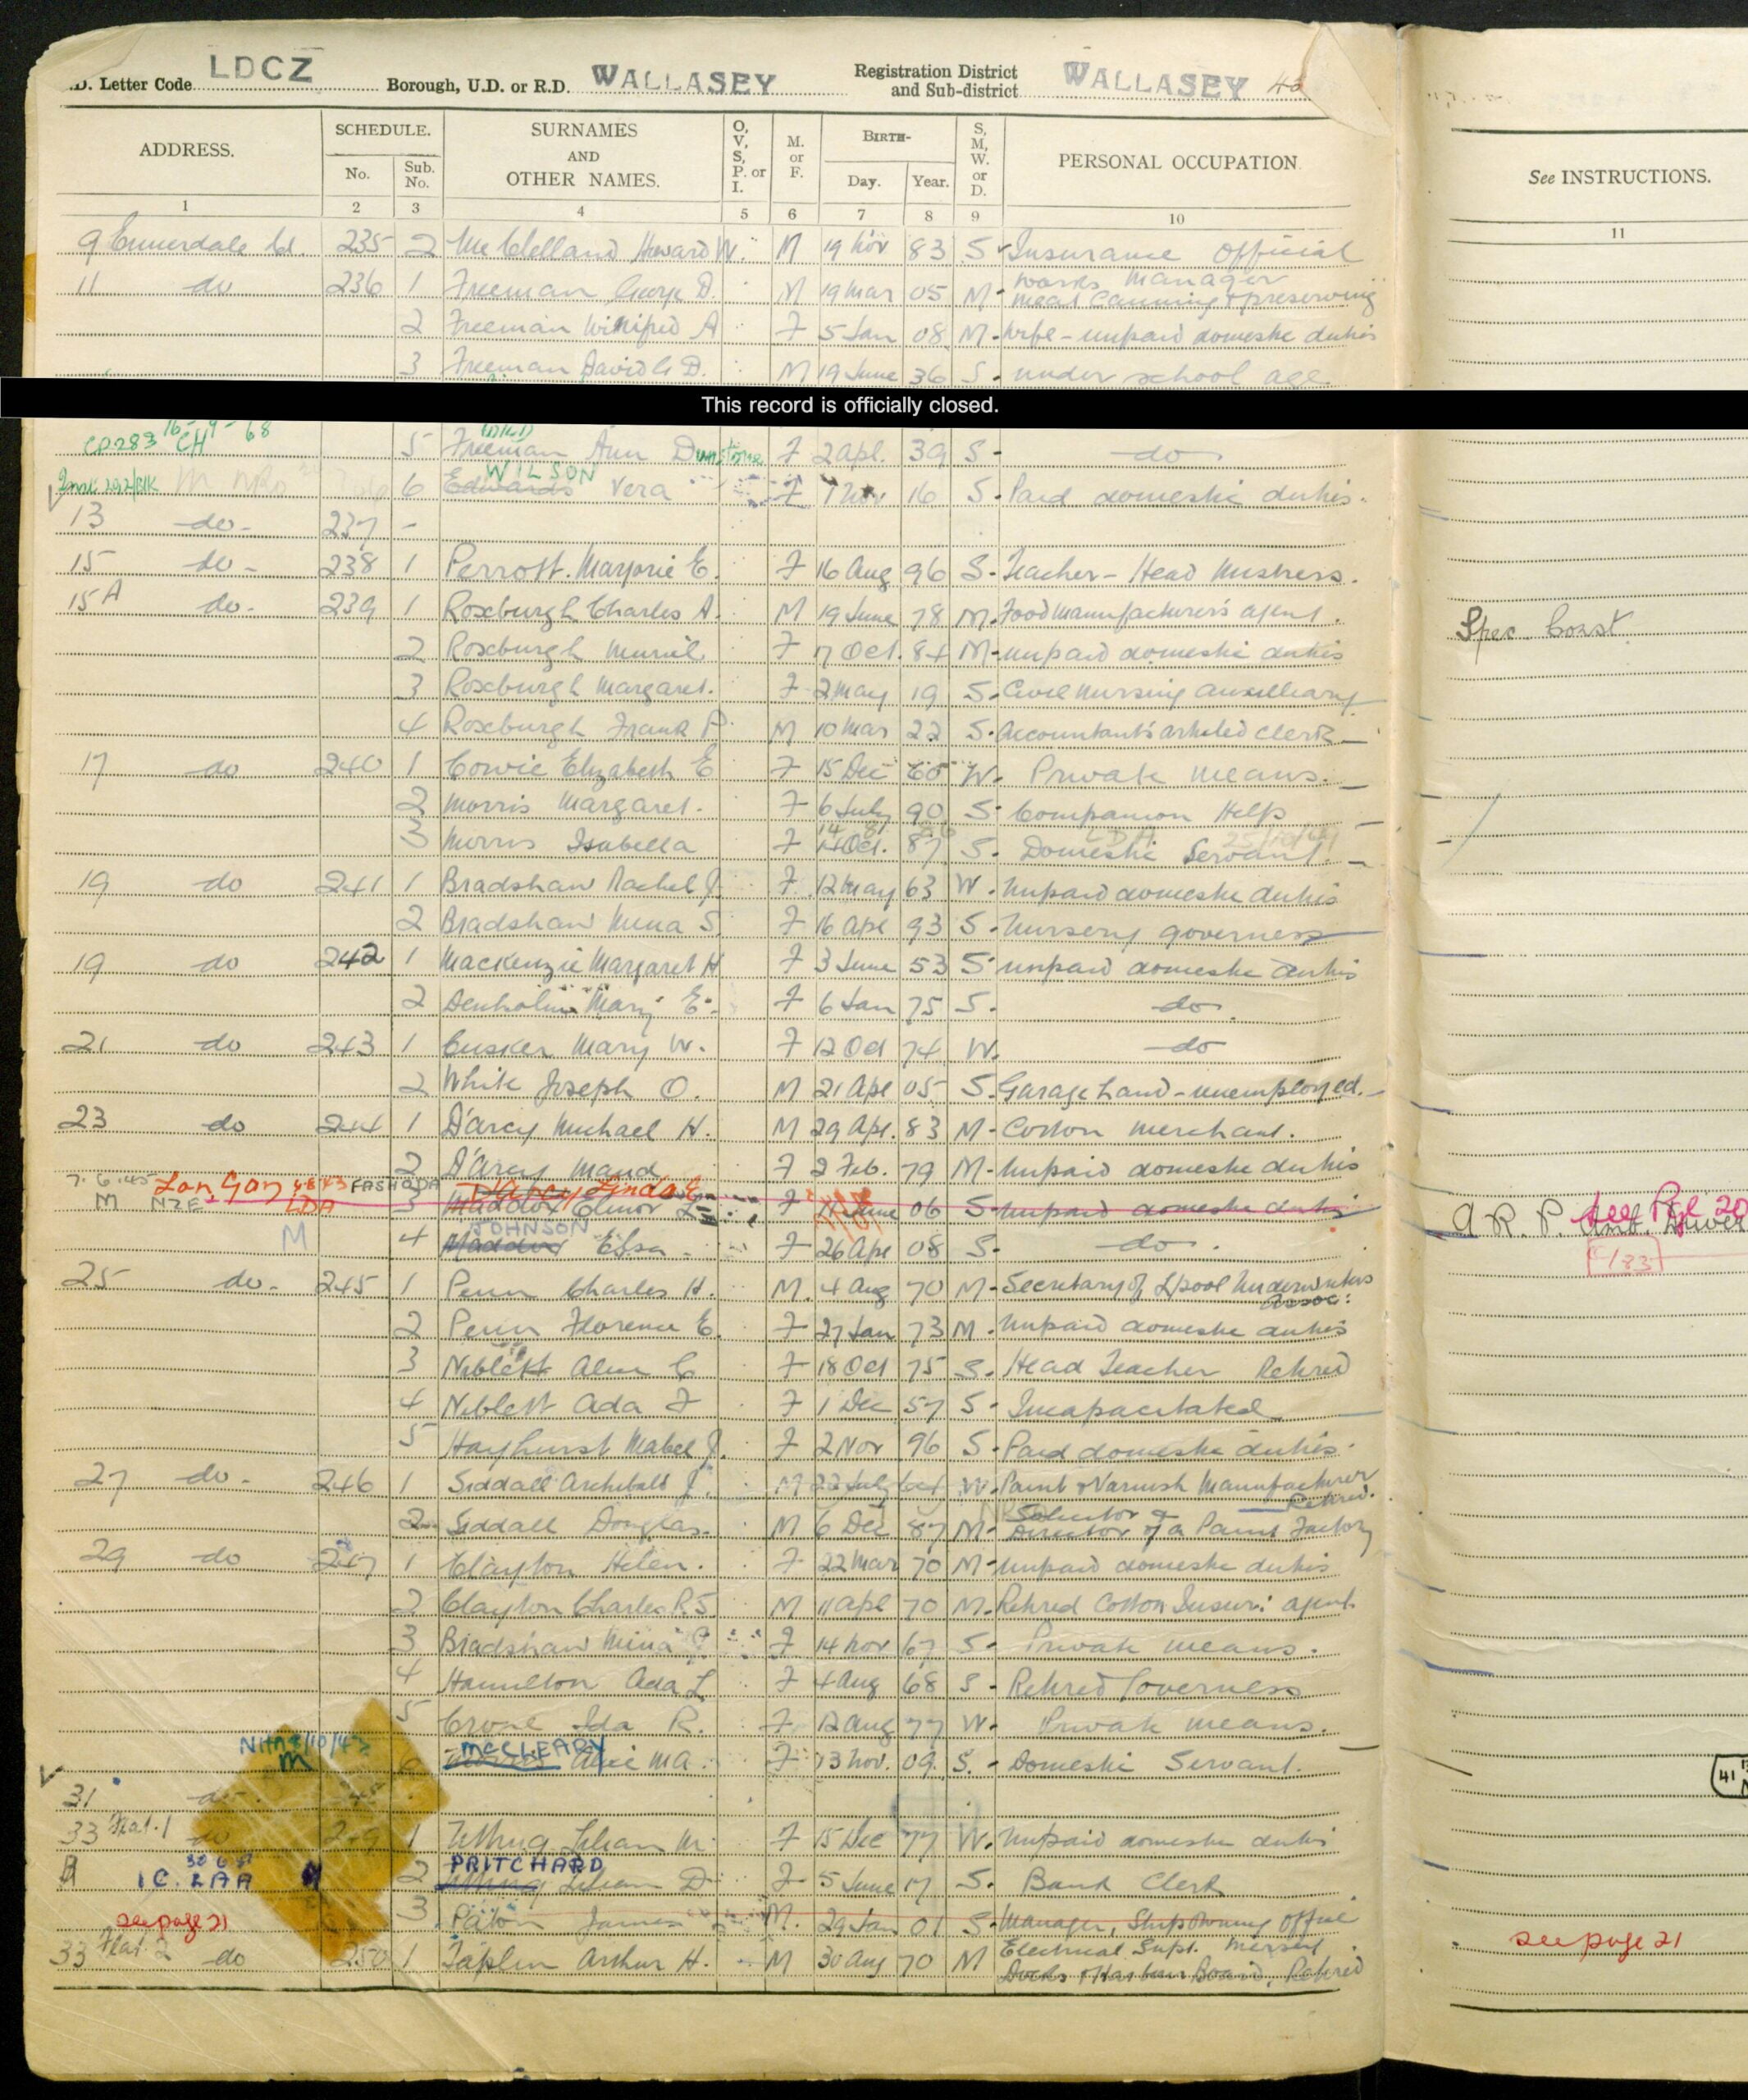 .D. Letter Code LDCZ Borough, U.D. or R.D. WALLASEY Registration District and Sub-district WALLASEY 43
ADDRESS. SCHEDULE. No. Sub. No. SURNAMES AND OTHER NAMES. O, V, S, P. or I. M. or F. BIRTH- Day. Year. S, M, W. or D. PERSONAL OCCUPATION. See INSTRUCTIONS.
1 2 3 4 5 6 7 8 9 10 11
9 Ennerdale Rd. 235 2 McClelland Howard W. M 19 Nov 83 S Insurance Official
11 do 236 1 Freeman George D. M 19 Mar 05 M Works Manager Meat Canning & preserving
2 Freeman Winifred A F 5 Jan 08 M Wife - unpaid domestic duties
3 Freeman David G D. M 19 June 36 S under school age
This record is officially closed.
CD283 CH 16-9-68 5 Freeman Ann Dunstone F 2 Apl. 39 S do
6 Edwards WILSON Vera F 7 16 S Paid domestic duties.
13 do 237 -
15 do 238 1 Perrott Marjorie E. F 16 Aug 96 S Teacher - Head Mistress.
15A do 239 1 Roxburgh Charles A. M 19 June 78 M Food Manufacturer's agent. Spec. Const.
2 Roxburgh Muriel F 7 Oct. 84 M unpaid domestic duties
3 Roxburgh Margaret. F 2 May 19 S Civil Nursing auxilliary
4 Roxburgh Frank P. M 10 Mar 22 S Accountants articled clerk
17 do 240 1 Cowie Elizabeth E F 15 Dec 60 W. Private means.
2 Morris Margaret. F 6 July 90 S Companion Help
3 Morris Isabella F 14 Oct. 87 S. Domestic Servant.
19 do 241 1 Bradshaw Rachel J. F 12 May 63 W Unpaid domestic duties
2 Bradshaw Mina S. F 16 Apl 93 S Nursery governess
19 do 242 1 Mackenzie Margaret H F 3 June 53 S unpaid domestic duties
2 Denholm Mary E. F 6 Jan 75 S. do.
21 do 243 1 Cusker Mary W. F 12 Oct 74 W. do
2 White Joseph O. M 21 Apl 05 S. Garage hand - unemployed.
23 do 244 1 D'Arcy Michael H. M 29 Apl. 83 M Cotton merchant.
2 D'Arcy Maud F 2 Feb. 79 M Unpaid domestic duties
7.6.45 M NZE LDA 3 Maddox Elinor F June 06 S unpaid domestic duties A.R.P. Amb. Driver See Pge 20
M 4 Maddox JOHNSON Elsa F 26 Apl 08 S do. C/83
25 do 245 1 Penn Charles H. M. 4 Aug 70 M Secretary of L/pool Underwriters Assoc:
2 Penn Florence E. F 27 Jan 73 M Unpaid domestic duties
3 Niblett Alice C F 18 Oct 75 S. Head Teacher Retired
4 Niblett Ada F F 1 Dec 57 S Incapacitated
5 Hayhurst Mabel J. F 2 Nov 96 S Paid domestic duties.
27 do 246 1 Siddall Archibald J. M 22 July 64 W Paint & Varnish Manufacturer Retired.
2 Siddall Douglas. M 6 Dec 87 M Solicitor & Director of a Paint Factory
29 do 247 1 Clayton Helen. F 22 Mar 70 M unpaid domestic duties
2 Clayton Charles R.S. M 11 Apl 70 M. Retired Cotton Insur: agent.
3 Bradshaw Mina F 14 Nov 67 S Private means.
4 Hamilton Ada L F 4 Aug 68 S Retired Governess
5 Ida R. F 12 Aug 77 W. Private means.
M 6 McCLEARY Alice M A. F 13 Nov. 09. S. Domestic Servant. 41
31 do
33 Flat. 1 do 249 1 Lilian M. F 15 Dec 77 W. Unpaid domestic duties
2 PRITCHARD Lilian D. F 5 June 17 S. Bank Clerk
see page 21 3 Paton James M. 29 Jan 01 S Manager, Shipowning Office see page 21
33 Flat. 2 do 250 1 Taplin Arthur H. M 30 Aug 70 M Electrical Supt. Mersey Docks & Harbour Board, Retired